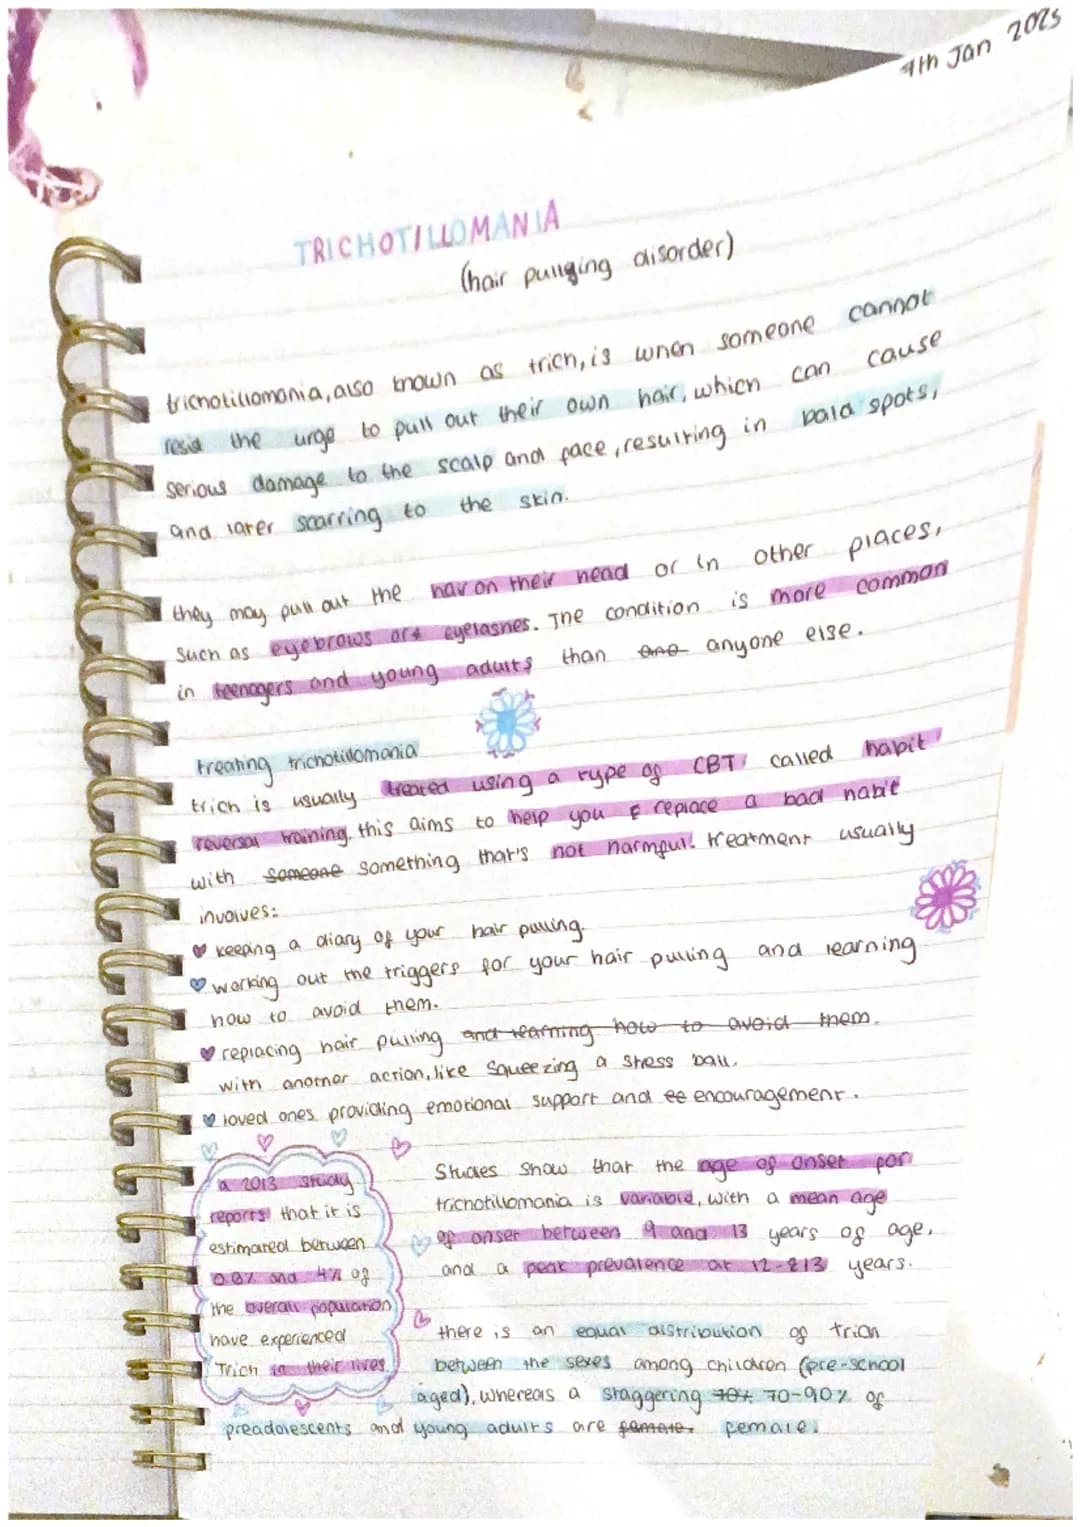 9th Jan 2025
TRICHOTILLOMANIA
(hair pullging disorder)
trichotillomania, also known as trich, is when someone cannot
resist the urge to pull out their own hair, which can cause
serious damage to the scalp and face, resulting in bald spots,
and later scarring to the skin.
they may pull out the hair on their head or in other places,
such as eyebrows or eyelashes. The condition is more common
in teenagers and young adults than one anyone else.
treating trichotillomania
trich is usually treated using a type of CBT called habit
reversal training. this aims to help you & replace a bad habit
with someone something that's not harmful. treatment usually
involves:
keeping a diary of your hair pulling.
working out the triggers for your hair pulling and learning
how to avoid them.
replacing hair pulling and learning how to avoid them.
with another action, like squeezing a stress ball.
loved ones providing emotional support and ee encouragement.
a 2013 study
reports that it is
estimated between
0.6% and 4% of
the overall population
have experienced
Trich in their lives.
Studies show that the age of onset for
trichotillomania is variable, with a mean age
of onset between 9 and 13 years of age,
and a peak prevalence at 12-13 years.
there is an equal distribution of trich
between the sexes among children (pre-school
aged), whereas a staggering 70% 70-90% of
preadolescents and young adults are female. female.